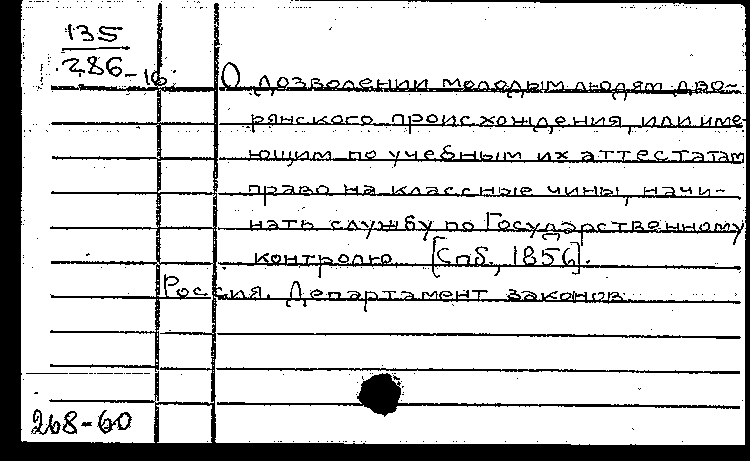 135
286-16;
О дозволении молодым людям дво-
рянского происхождения, или име-
ющим по учебным их аттестатам
право на классные чины, начи-
нать службу по Государственному
контролю. [Спб., 1856].
Россия. Департамент законов
268-60